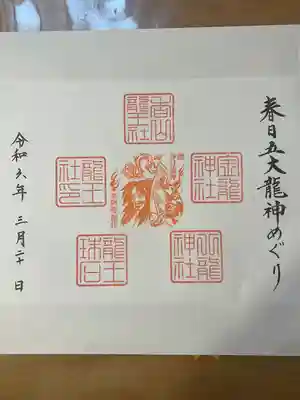 春日五大龍神めぐり
金龍
神社
龍王
社
龍王
珠石
龍
神社
令和六年 三月二十日